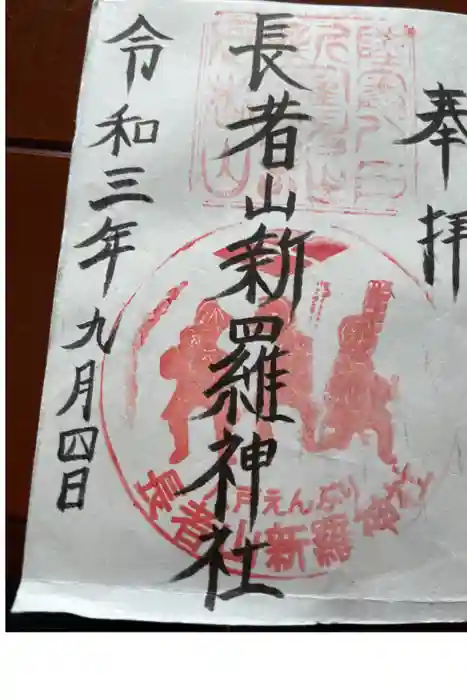 奉拝
長者山新羅神社
令和三年九月四日
八戸えんぶり
長者山新羅神社